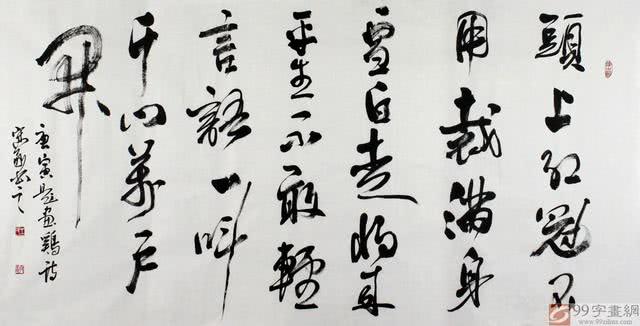 頭上紅冠不
用裁滿身
雪白走将来
平生不敢輕
言語一叫
千门萬户
開
庚寅題畫鷄詩
書之
99字畫網
www.99zihua.com